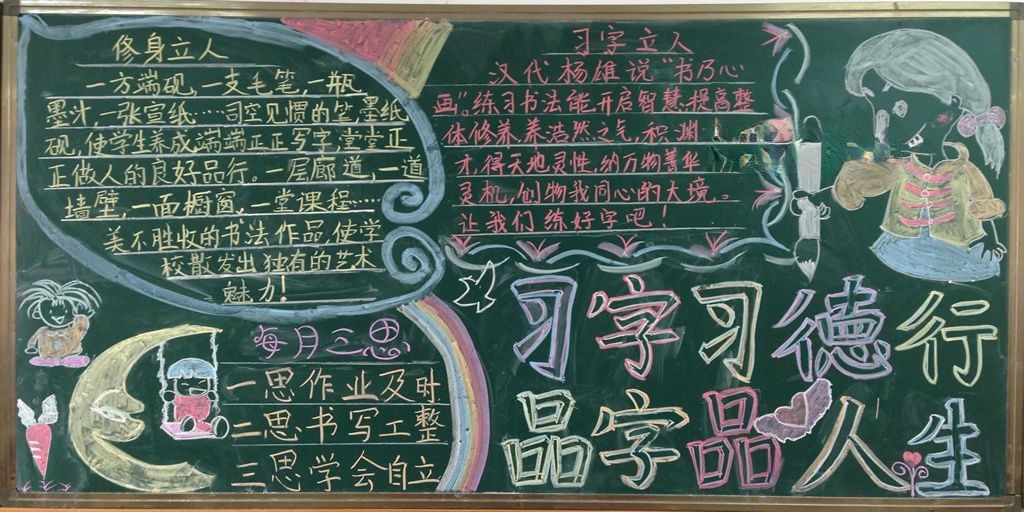 修身立人
一方端砚,一支毛笔,一瓶
墨汁,一张宣纸……司空见惯的笔墨纸
砚,使学生养成端端正正写字,堂堂正
正做人的良好品行。一层廊道,一道
墙壁,一面橱窗,一堂课程……
美不胜收的书法作品,使学
校散发出独有的艺术
魅力!
习字立人
汉代杨雄说"书乃心
画"。练习书法能开启智慧,提高整
体修养,养浩然之气,积渊
才,得天地灵性,纳万物菁华
灵机,创物我同心的大境。
让我们练好字吧!
每月三思
一思作业及时
二思书写工整
三思学会自立
习字习德行
品字品人生